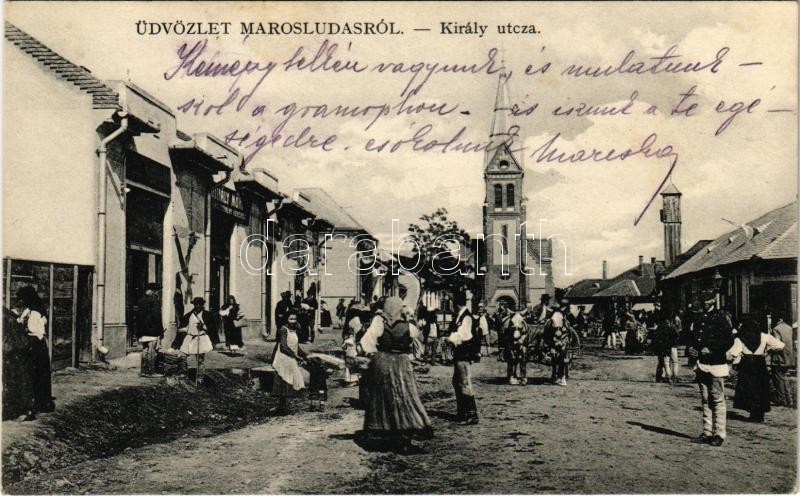 ÜDVÖZLET MAROSLUDASRÓL. — Király utcza.
Kemény telken vagyunk, és mulatunk —
szól a gramophon — és iszunk a te egé-
ségedre. csókolunk Mareska
darabanth